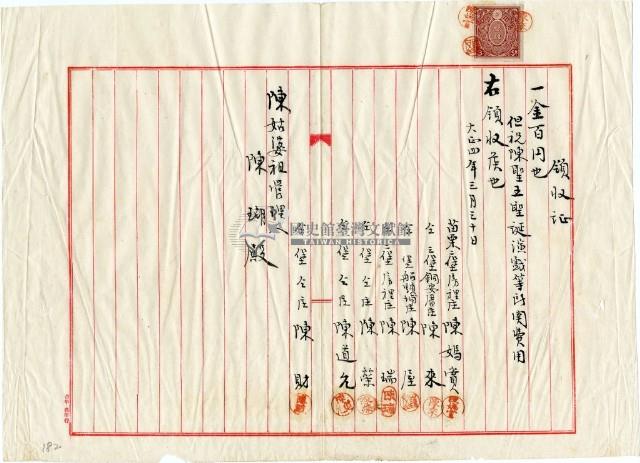 領收証
一金百円也
但祝陳聖王聖誕演戲等ニ関費用
右領收候也
大正四年三月三十日
苗栗二堡房裡庄 陳媽實
仝三堡銅安厝庄 陳來
仝堡船頭埔庄 陳屋
仝二堡房裡庄 陳瑞
仝堡仝庄 陳榮
仝堡仝庄 陳道允
仝堡仝庄 陳財
陳姑婆祖管理人
陳瑚殿
國史館臺灣文獻館
TAIWAN HISTORICA
182